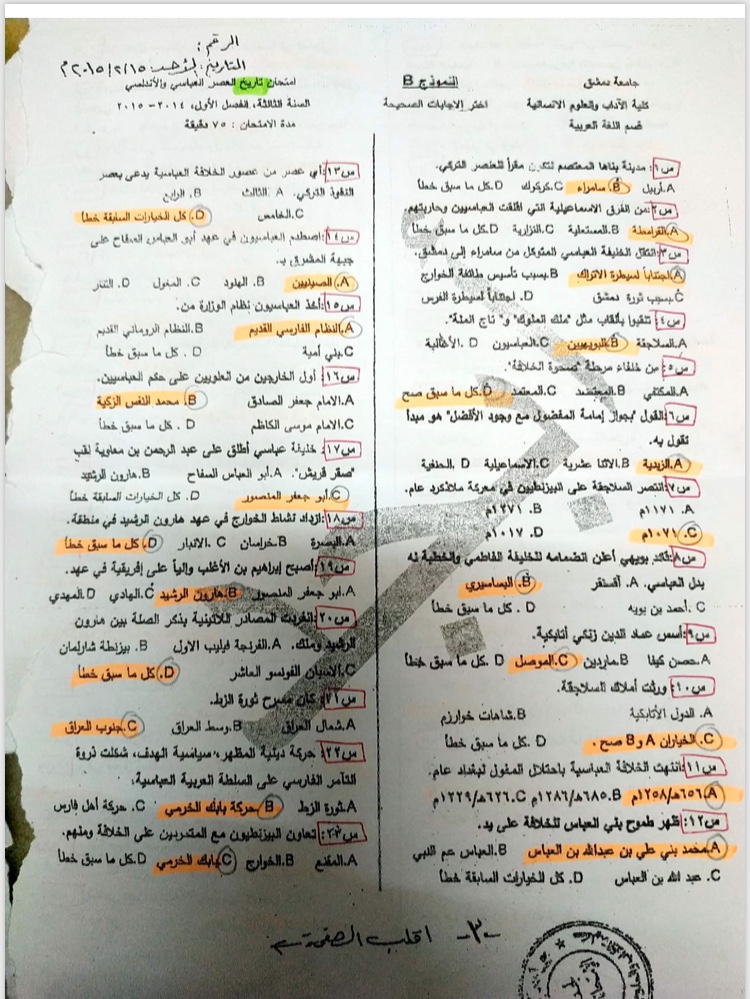 الرقم:
التاريخ: الأحد: ٢٠١٥/٢/١٥م
جامعة دمشق
النموذج B
امتحان تاريخ العصر العباسي والأندلسي
كلية الآداب والعلوم الانسانية
اختر الاجابات الصحيحة
السنة الثالثة، الفصل الأول، ٢٠١٤-٢٠١٥
قسم اللغة العربية
مدة الامتحان: ٧٥ دقيقة
س١: مدينة بناها المعتصم لتكون مقراً للعنصر التركي.
A. أربيل B. سامراء C. كركوك D. كل ما سبق خطأ
س٢: من الفرق الاسماعيلية التي اقلقت العباسيين وحاربتهم.
A. القرامطة B. المستعلية C. النزارية D. كل ما سبق خطأ
س٣: انتقل الخليفة العباسي المتوكل من سامراء إلى دمشق.
A. اجتناباً لسيطرة الاتراك B. بسبب تأسيس طائفة الخوارج
C. بسبب ثورة دمشق D. اجتناباً لسيطرة الفرس
س٤: تلقبوا بألقاب مثل "ملك الملوك" و" تاج الملة".
A. السلاجقة B. البويهيين C. العباسيون D. الأغالبة
س٥: من خلفاء مرحلة "صحوة الخلافة".
A. المكتفي B. المعتضد C. المعتمد D. كل ما سبق صح
س٦: القول "بجواز إمامة المفضول مع وجود الأفضل" هو مبدأ
تقول به.
A. الزيدية B. الاثنا عشرية C. الاسماعيلية D. الحنفية
س٧: انتصر السلاجقة على البيزنطيين في معركة ملاذكرد عام.
A. ١١٧١م B. ١٢٧١م
C. ١٠٧١م D. ١٠١٧م
س٨: قائد بويهي أعلن انضمامه للخليفة الفاطمي والخطبة له
بدل العباسي. A. آقسنقر B. البساسيري
C. أحمد بن بويه D. كل ما سبق خطأ
س٩: أسس عماد الدين زنكي أتابكية.
A. حصن كيفا B. ماردين C. الموصل D. كل ما سبق خطأ
س١٠: ورثت أملاك السلاجقة.
A. الدول الأتابكية B. شاهات خوارزم
C. الخياران A و B صح. D. كل ما سبق خطأ
س١١: انتهت الخلافة العباسية باحتلال المغول لبغداد عام.
A. ٦٥٦هـ/١٢٥٨م B. ٦٨٥هـ/١٢٨٦م C. ٦٢٦هـ/١٢٢٩م
س١٢: ظهر طموح بني العباس للخلافة على يد.
A. محمد بني علي بن عبدالله بن العباس B. العباس عم النبي
C. عبد الله بن العباس D. كل الخيارات السابقة خطأ
س١٣: أي عصر من عصور الخلافة العباسية يدعى بعصر
النفوذ التركي. A. الثالث B. الرابع
C. الخامس D. كل الخيارات السابقة خطأ
س١٤: اصطدم العباسيون في عهد أبو العباس السفاح على
جبهة المشرق بـ.
A. الصينيين B. الهنود C. المغول D. التتار
س١٥: أخذ العباسيون نظام الوزارة من.
A. النظام الفارسي القديم B. النظام الروماني القديم
C. بني أمية D. كل ما سبق خطأ
س١٦: أول الخارجين من العلويين على حكم العباسيين.
A. الامام جعفر الصادق B. محمد النفس الزكية
C. الامام موسى الكاظم D. كل ما سبق خطأ
س١٧: خليفة عباسي أطلق على عبد الرحمن بن معاوية لقب
"صقر قريش". A. أبو العباس السفاح B. هارون الرشيد
C. أبو جعفر المنصور D. كل الخيارات السابقة خطأ
س١٨: ازداد نشاط الخوارج في عهد هارون الرشيد في منطقة.
A. البصرة B. خراسان C. الانبار D. كل ما سبق خطأ
س١٩: أصبح إبراهيم بن الأغلب والياً على إفريقية في عهد.
A. ابو جعفر المنصور B. هارون الرشيد C. الهادي D. المهدي
س٢٠: انفردت المصادر اللاتينية بذكر الصلة بين هارون
الرشيد وملك. A. الفرنجة فيليب الاول B. بيزنطة شارلمان
C. الاسبان الفونسو العاشر D. كل ما سبق خطأ
س٢١: كان مسرح ثورة الزط.
A. شمال العراق B. وسط العراق C. جنوب العراق
س٢٢: حركة دينية المظهر، سياسية الهدف، شكلت ذروة
التآمر الفارسي على السلطة العربية العباسية.
A. ثورة الزط B. حركة بابك الخرمي C. حركة أهل فارس
س٢٣: تعاون البيزنطيون مع المتمردين على الخلافة ومنهم.
A. المقنع B. الخوارج C. بابك الخرمي D. كل ما سبق خطأ
-٣- اقلب الصفحة